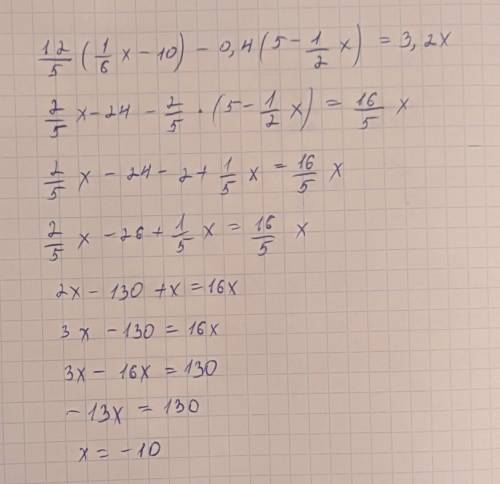 12/5 (1/6 x - 10) - 0,4 (5 - 1/2 x) = 3,2x
2/5 x - 24 - 2/5 · (5 - 1/2 x) = 16/5 x
2/5 x - 24 - 2 + 1/5 x = 16/5 x
2/5 x - 26 + 1/5 x = 16/5 x
2x - 130 + x = 16x
3x - 130 = 16x
3x - 16x = 130
-13x = 130
x = -10